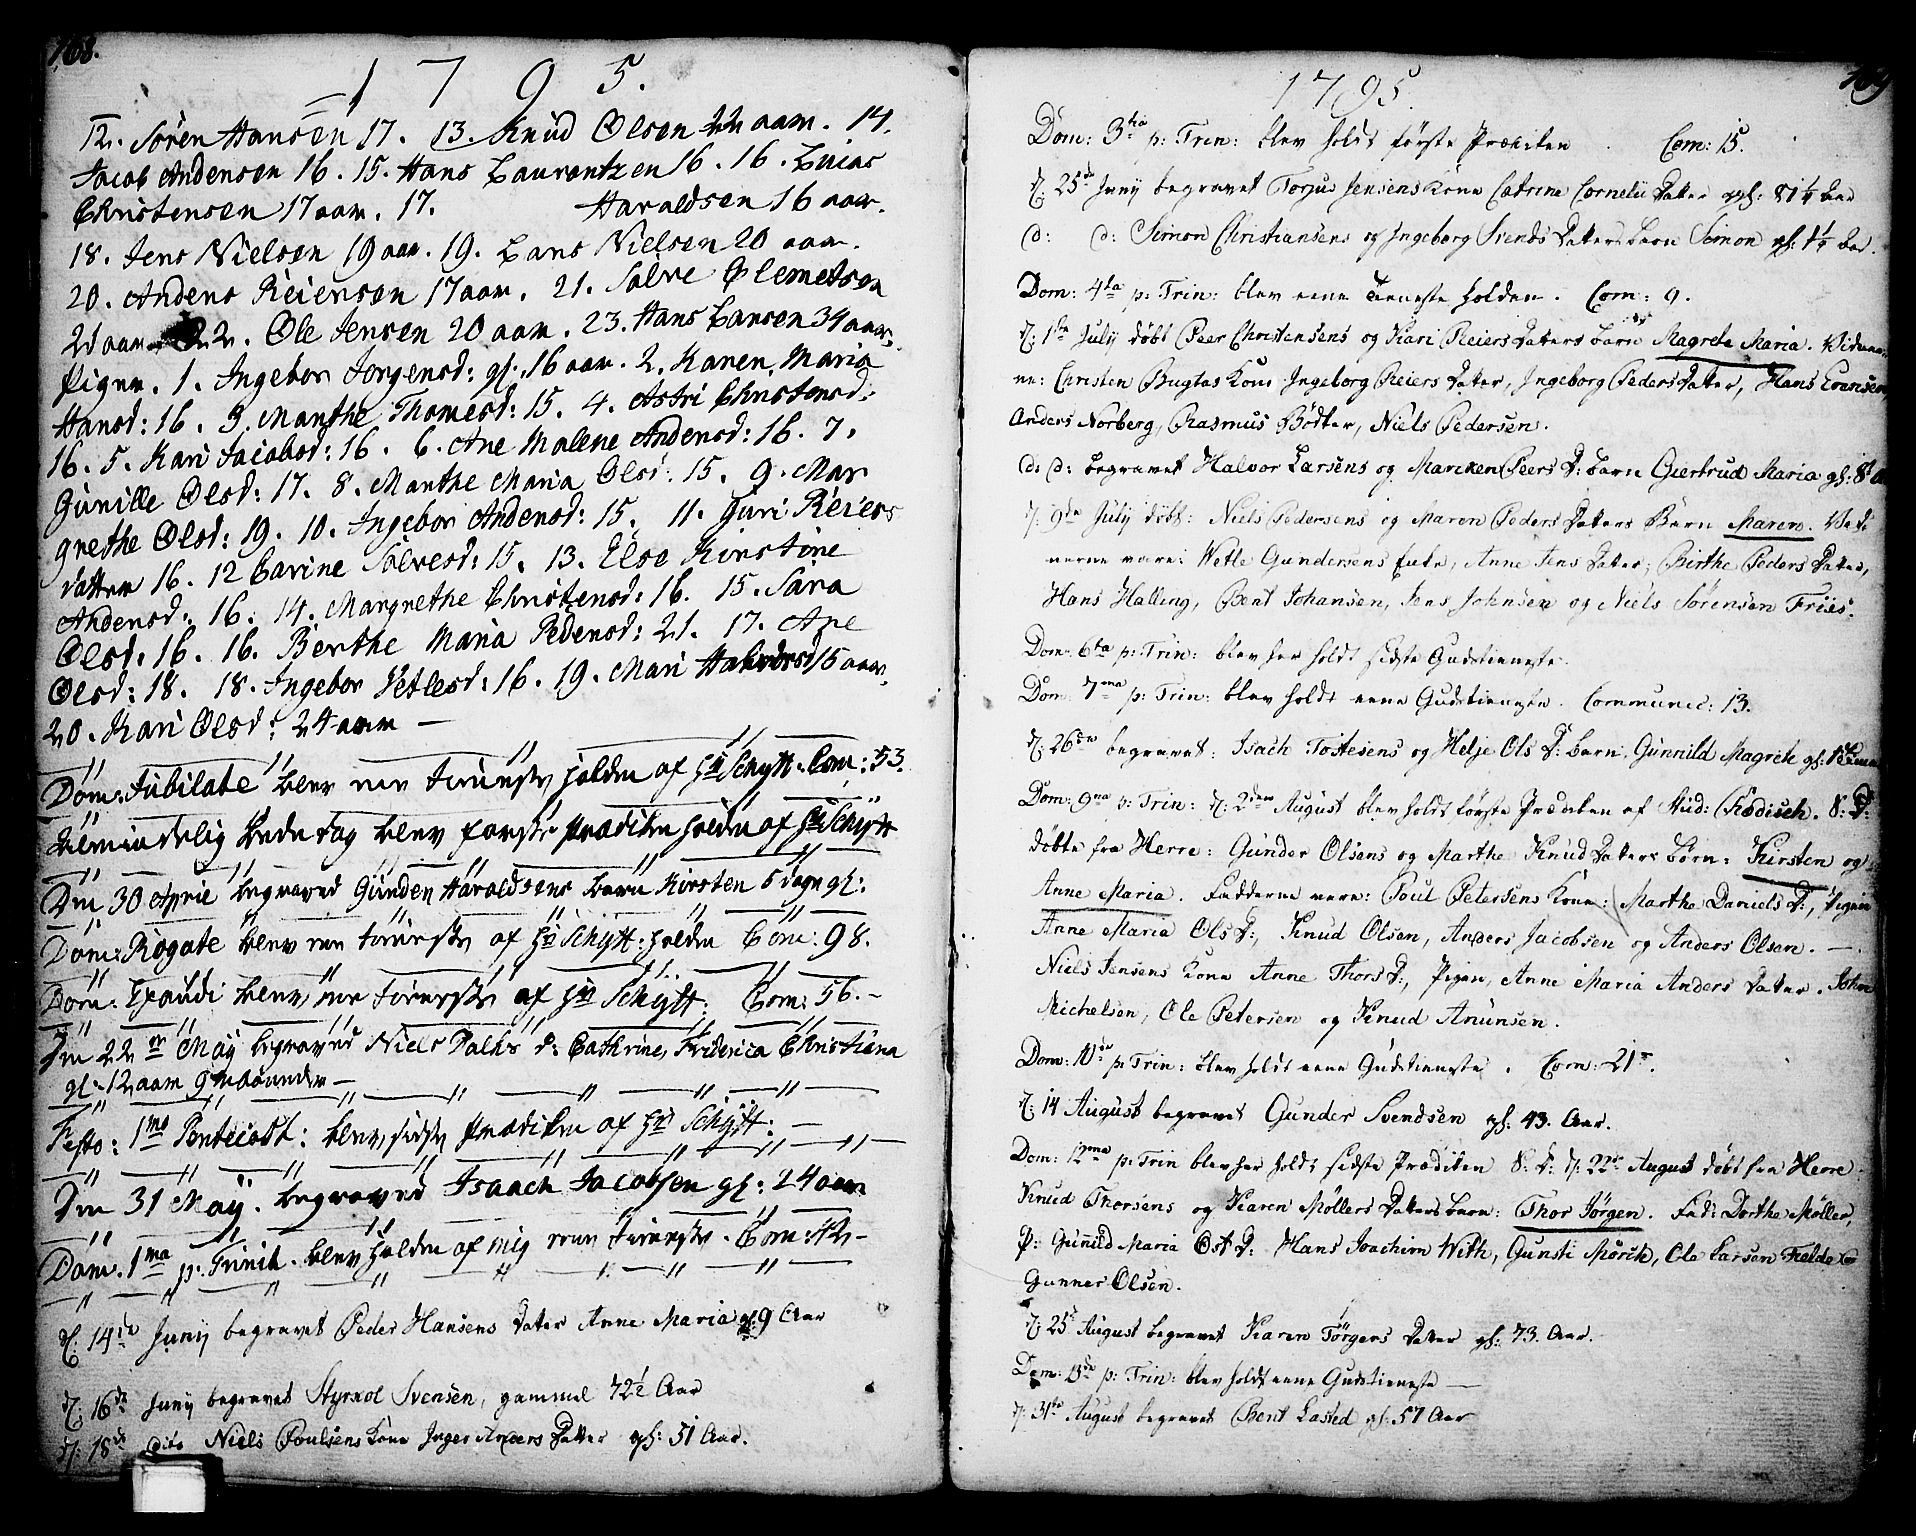 168.
1795.
12. Sören Hansen 17. 13. Knud Olsen 22 aar. 14.
Jacob Andersen 16. 15. Hans Laurentzen 16. 16. Lucas
Christensen 17 aar. 17. Haraldsen 16 aar.
18. Jens Nielsen 19 aar. 19. Lars Nielsen 20 aar.
20. Anders Reiersen 17 aar. 21. Salve Clemetsen
21 aar 22. Ole Jensen 20 aar. 23. Hans Larsen 34 aar.
Piger. 1. Ingebor Jorgensd: gl. 16 aar. 2. Karen Maria
Hansd: 16. 3. Marthe Thomesd: 15. 4. Astri Christensd:
16. 5. Kari Jacobsd: 16. 6. Ane Malene Andersd: 16. 7.
Gunille Olsd: 17. 8. Marthe Maria Olsd: 15. 9. Mar
grethe Olsd: 19. 10. Ingebor Andersd: 15. 11. Guri Reiers
datter 16. 12 Carine Salvesd: 15. 13. Else Kirstine
Andersd: 16. 14. Margrethe Christensd: 16. 15. Sara
Olsd: 16. 16. Berthe Maria Pedersd: 21. 17. Ane
Olsd: 18. 18. Ingebor Vetlesd: 16. 19. Mari Halvorsd 15 aar.
20. Kari Olsd: 24 aar —
Dom: Jubilate blev een tieneste holden af Hr Schytt. Com: 53.
Almindelig Bededag blev første Prædiken holden af Hr Schytt
Den 30 April begraved Gunder Haraldsens barn Kirsten 5 dage gl:
Dom: Rogate blev een tieneste af Hr Schytt: holden Com: 98.
Dom: Exaudi blev een tieneste af Hr Schytt: Com: 56. —
Den 22 May begraved Niels Falks d: Cathrine Friderica Christiana
gl: 12 aar
Festo: 1mo Pentecost: blev sidste Prædiken af Hr Schytt: —
Den 31 May. begraved Isaach Jacobsen gl: 24 aar
Dom. 1ma p: Trinit. blev holden af mig een tieneste. Com: 42 —
d: 14de Juny begravet Peder Hansens Datter Anne Maria gl: 9 Aar
d: 16de Juny begravet Styrkol Svensen, gammel 72½ Aar
d: 18de dito Niels Poulsens Kone Inger Anders Datter gl: 51 Aar.
169
1795.
Dom: 3tia p: Trin: blev holdt første Prædiken. Com: 15.
d: 25de Juny begravet Torjus Jensens Kone Catrine Cornelii Datter gl: 81½ Aar
d: d: Simon Christiansens og Ingeborg Svends Datters barn Simon gl: 1½ Aar.
Dom: 4ta p: Trin: blev eene Tieneste holden. Com: 9.
d: 1ste July døbt Peer Christensens og Kari Reiers Datters barn Magrete Maria. Vidner-
ne: Christen Bugtas Kone Ingeborg Reiers Datter, Ingeborg Peders Datter, Hans Evensen
Anders Norberg, Rasmus Bödker, Niels Pedersen.
d: d: begravet Halvor Larsens og Mariken Peers D: barn Giertrud Maria gl:
d: 9de July døbt: Niels Pedersens og Maren Peders Datters Barn Maren. Vid-
nerne vare: Wetle Gundersens Enke, Anne Jens Datter, Birthe Peders Datter,
Hans Halling, Bent Johansen, Jens Johnsen og Niels Sörensen Friis.
Dom: 6ta p: Trin: blev her holdt sidste Gudstieneste.
Dom: 7ma p: Trin: blev holdt eene Gudstieneste. Communic: 13.
d: 26de begravet: Isach Tostesens og Helje Ols D: barn Gunnild Magrete gl:
Dom: 9na p: Trin: d: 2den August blev holdt første Prædiken af Stud: Rödisch. S: D:
døbte fra Herre: Gunder Olsens og Marthe Knud Datters Børn: Kirsten og
Anne Maria. Fadderne vare: Poul Petersens Kone: Marthe Daniels D:, Pigen
Anne Maria Ols D:, Knud Olsen, Anders Jacobsen og Anders Olsen. —
Niels Jensens Kone Anne Thors D:, Pigen Anne Maria Anders Datter. John
Michelsen, Ole Petersen og Knud Anunsen.
Dom: 10de p: Trin: blev holdt eene Gudstieneste. Com: 21.
d: 14 August begravet Gunder Svendsen gl: 43. Aar.
Dom: 12ma p: Trin blev her holdt sidste Prædiken S: D: d: 22de August døbt fra Herre
Knud Thorsens og Karen Möllers Datters barn: Thor Jörgen. Fad: Dorthe Möller,
P: Gunild Maria Ost D: Hans Joachim With, Gunsti Mörch, Ole Larsen Felde
Gunner Olsen.
d: 25de August begravet Karen Törgers Datter gl: 73. Aar.
Dom: 13de p: Trin: blev holdt eene Gudstieneste —
d: 31te August begravet Bent Lasted gl: 57 Aar